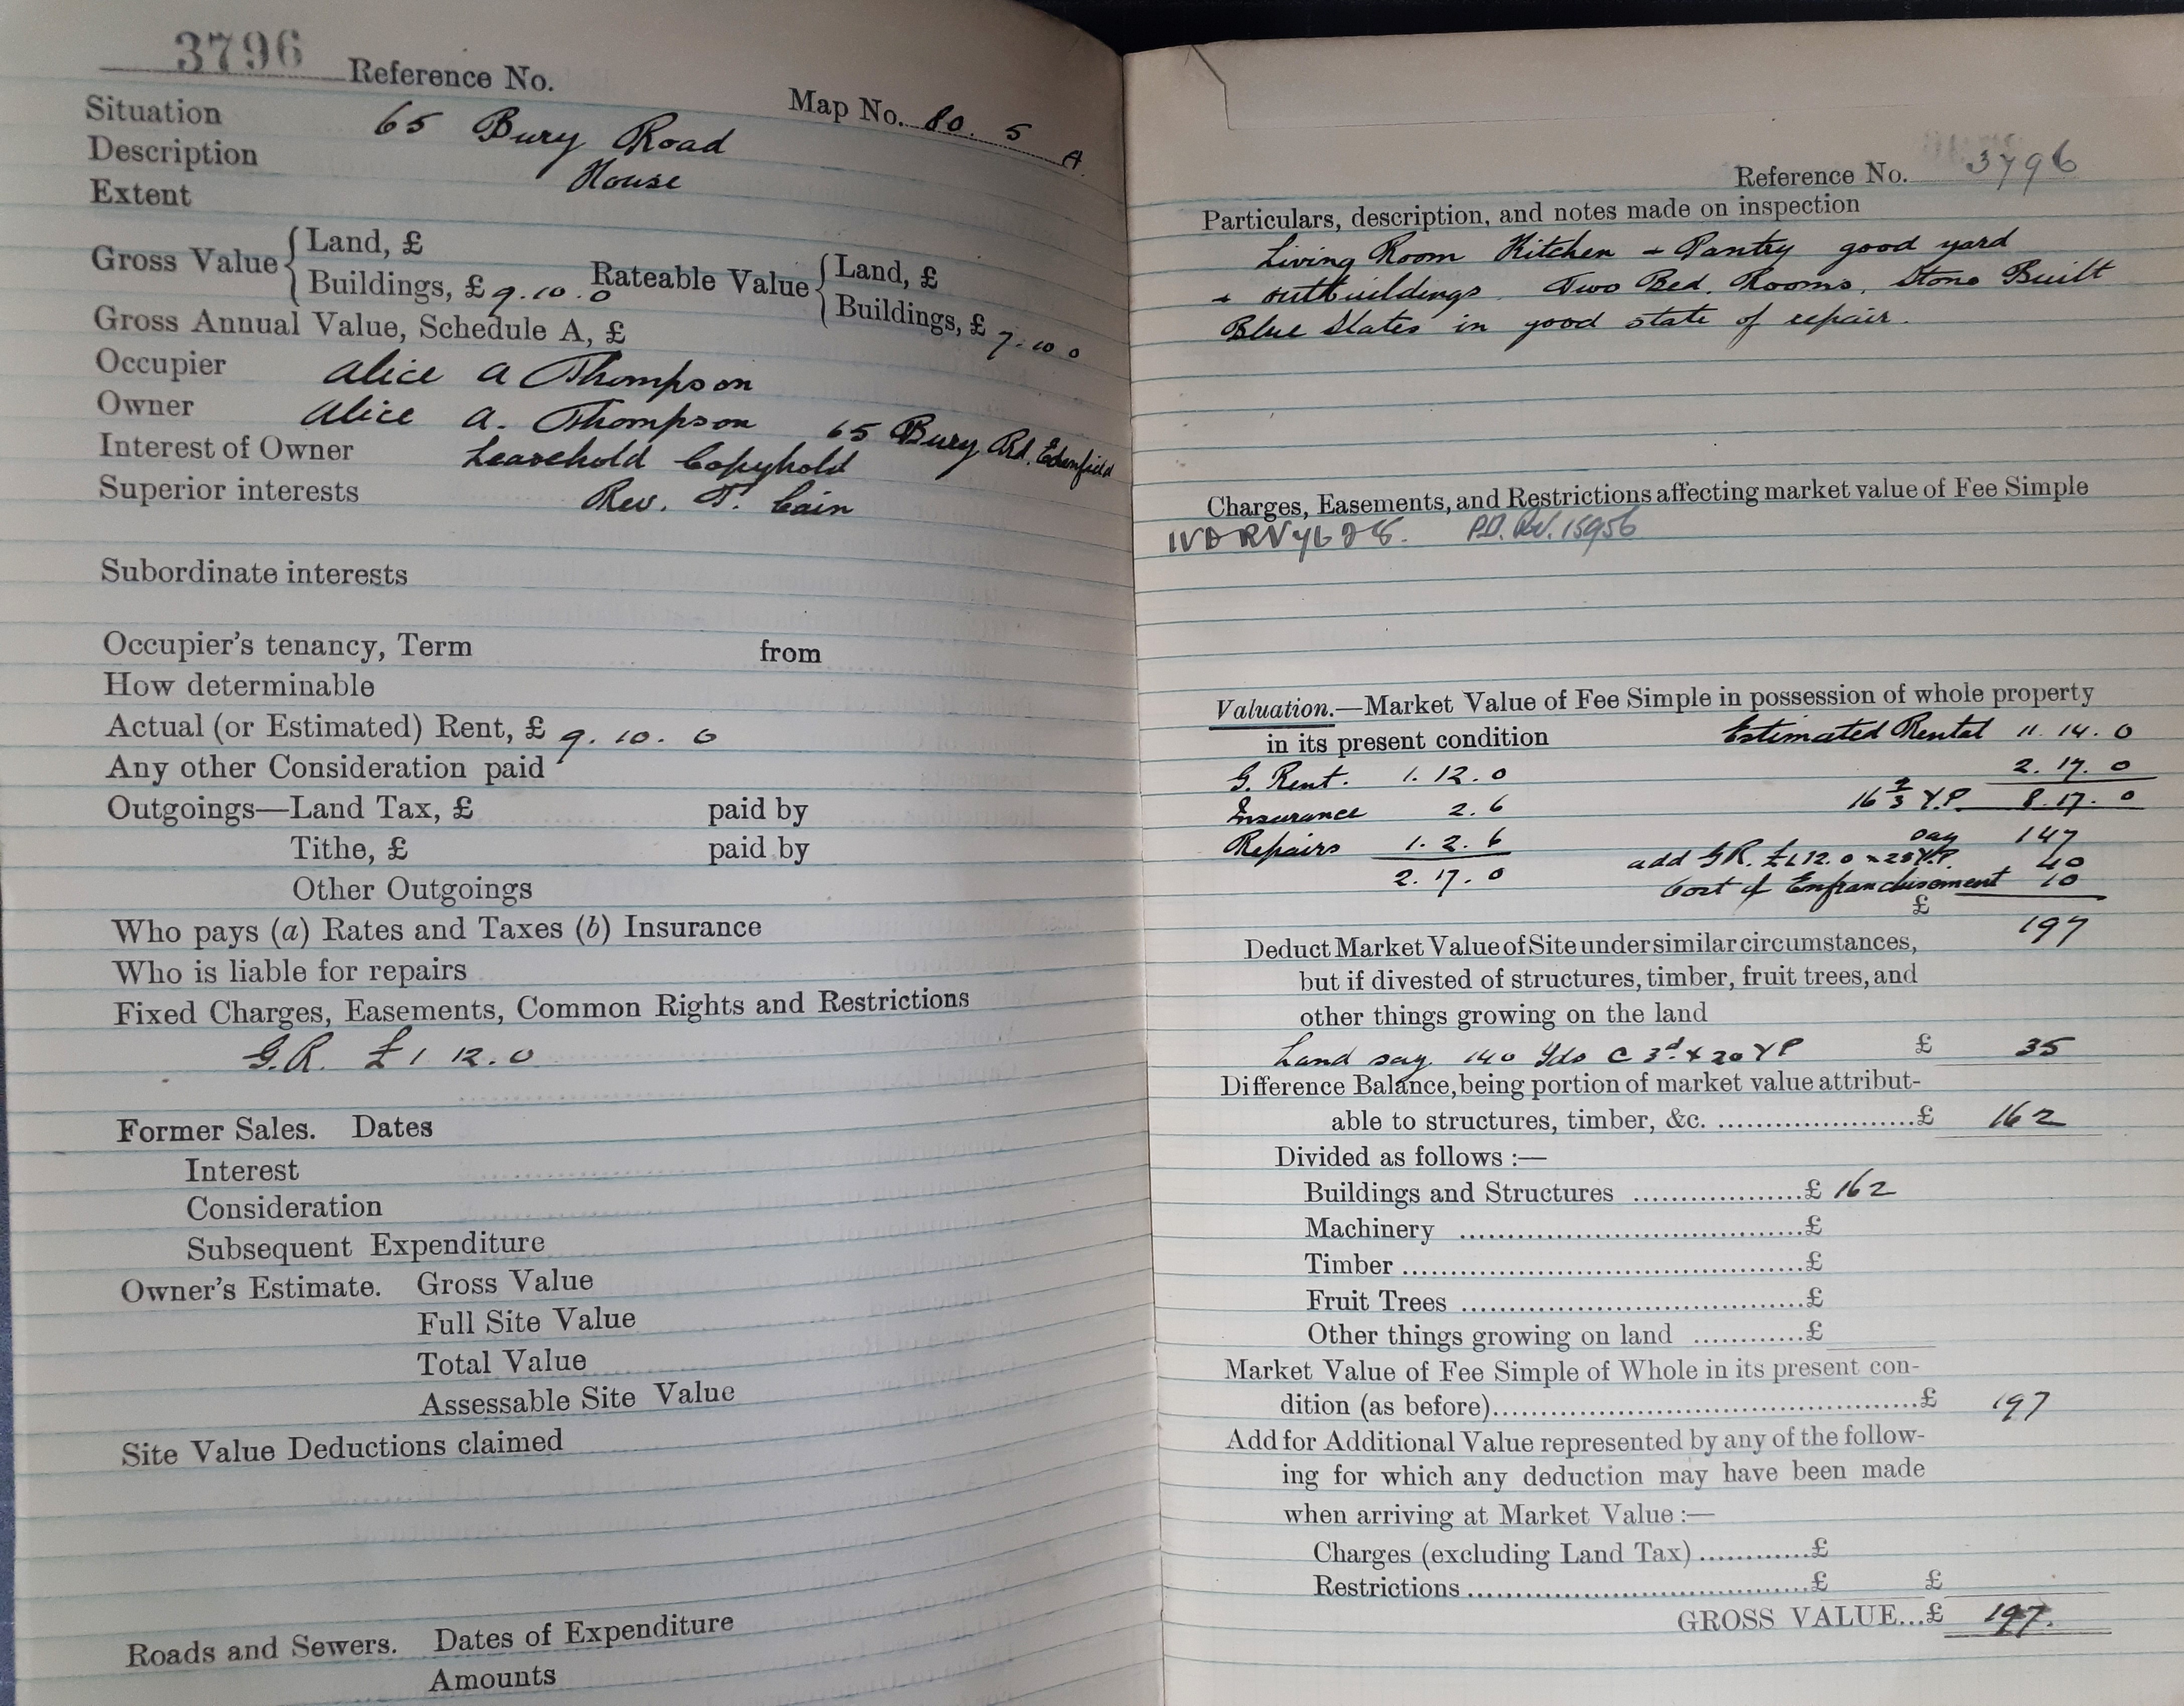 3796 Reference No.
Map No. 80. 5 A.
Situation 65 Bury Road
Description House
Extent
Gross Value { Land, £
Buildings, £ 9. 10. 0
Rateable Value { Land, £
Buildings, £ 7. 10 0
Gross Annual Value, Schedule A, £
Occupier Alice A Thompson
Owner Alice A. Thompson 65 Bury Rd. Edenfield
Interest of Owner Leasehold Copyhold
Superior interests Rev. T. Cain
Subordinate interests
Occupier's tenancy, Term from
How determinable
Actual (or Estimated) Rent, £ 9. 10. 0
Any other Consideration paid
Outgoings—Land Tax, £ paid by
Tithe, £ paid by
Other Outgoings
Who pays (a) Rates and Taxes (b) Insurance
Who is liable for repairs
Fixed Charges, Easements, Common Rights and Restrictions
G.R. £1 12. 0
Former Sales. Dates
Interest
Consideration
Subsequent Expenditure
Owner's Estimate. Gross Value
Full Site Value
Total Value
Assessable Site Value
Site Value Deductions claimed
Roads and Sewers. Dates of Expenditure
Amounts
Reference No. 3796
Particulars, description, and notes made on inspection
Living Room Kitchen + Pantry good yard
+ outbuildings. Two Bed. Rooms. Stone Built
Blue Slates in good state of repair.
Charges, Easements, and Restrictions affecting market value of Fee Simple
Valuation.—Market Value of Fee Simple in possession of whole property
in its present condition Estimated Rental 11. 14. 0
G. Rent. 1. 12. 0 2. 17. 0
Insurance 2. 6 16 2/3 Y.P. 8. 17. 0
Repairs 1. 2. 6 say 147
2. 17. 0 add G.R. £1.12.0 x 25 Y.P. 40
Cost of Enfranchisement 10
£ 197
Deduct Market Value of Site under similar circumstances,
but if divested of structures, timber, fruit trees, and
other things growing on the land
Land say 140 Yds @ 3d. x 20 YP £ 35
Difference Balance, being portion of market value attribut-
able to structures, timber, &c. ....................£ 162
Divided as follows :—
Buildings and Structures ..................£ 162
Machinery ....................................£
Timber ..........................................£
Fruit Trees ....................................£
Other things growing on land ............£
Market Value of Fee Simple of Whole in its present con-
dition (as before)............................................£ 197
Add for Additional Value represented by any of the follow-
ing for which any deduction may have been made
when arriving at Market Value :—
Charges (excluding Land Tax)............£
Restrictions....................................£ £
GROSS VALUE...£ 197.